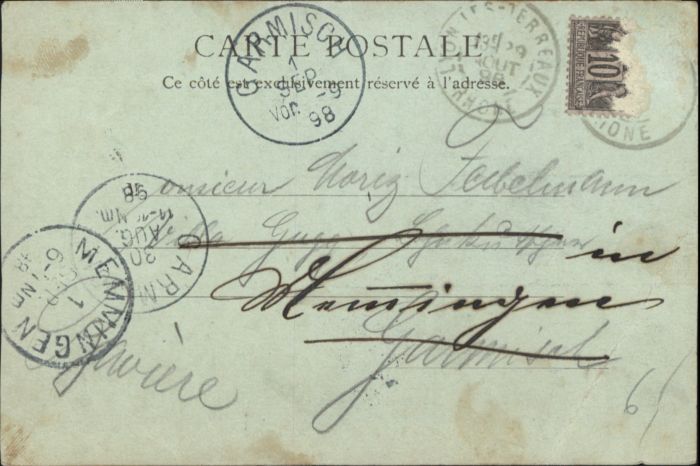 CARTE POSTALE
Ce côté est exclusivement réservé à l'adresse.
GARMISCH
1
SEP.
8-9
Vor.
98
LYON LES-TERREAUX
29
AOUT
98
RHONE
RÉPUBLIQUE FRANÇAISE
10
Monsieur Moriz Feibelmann
Villa
in
Memmingen
Garmisch
Bavière
30
AUG.
98
MEMMINGEN
1
SEP
Nm
98